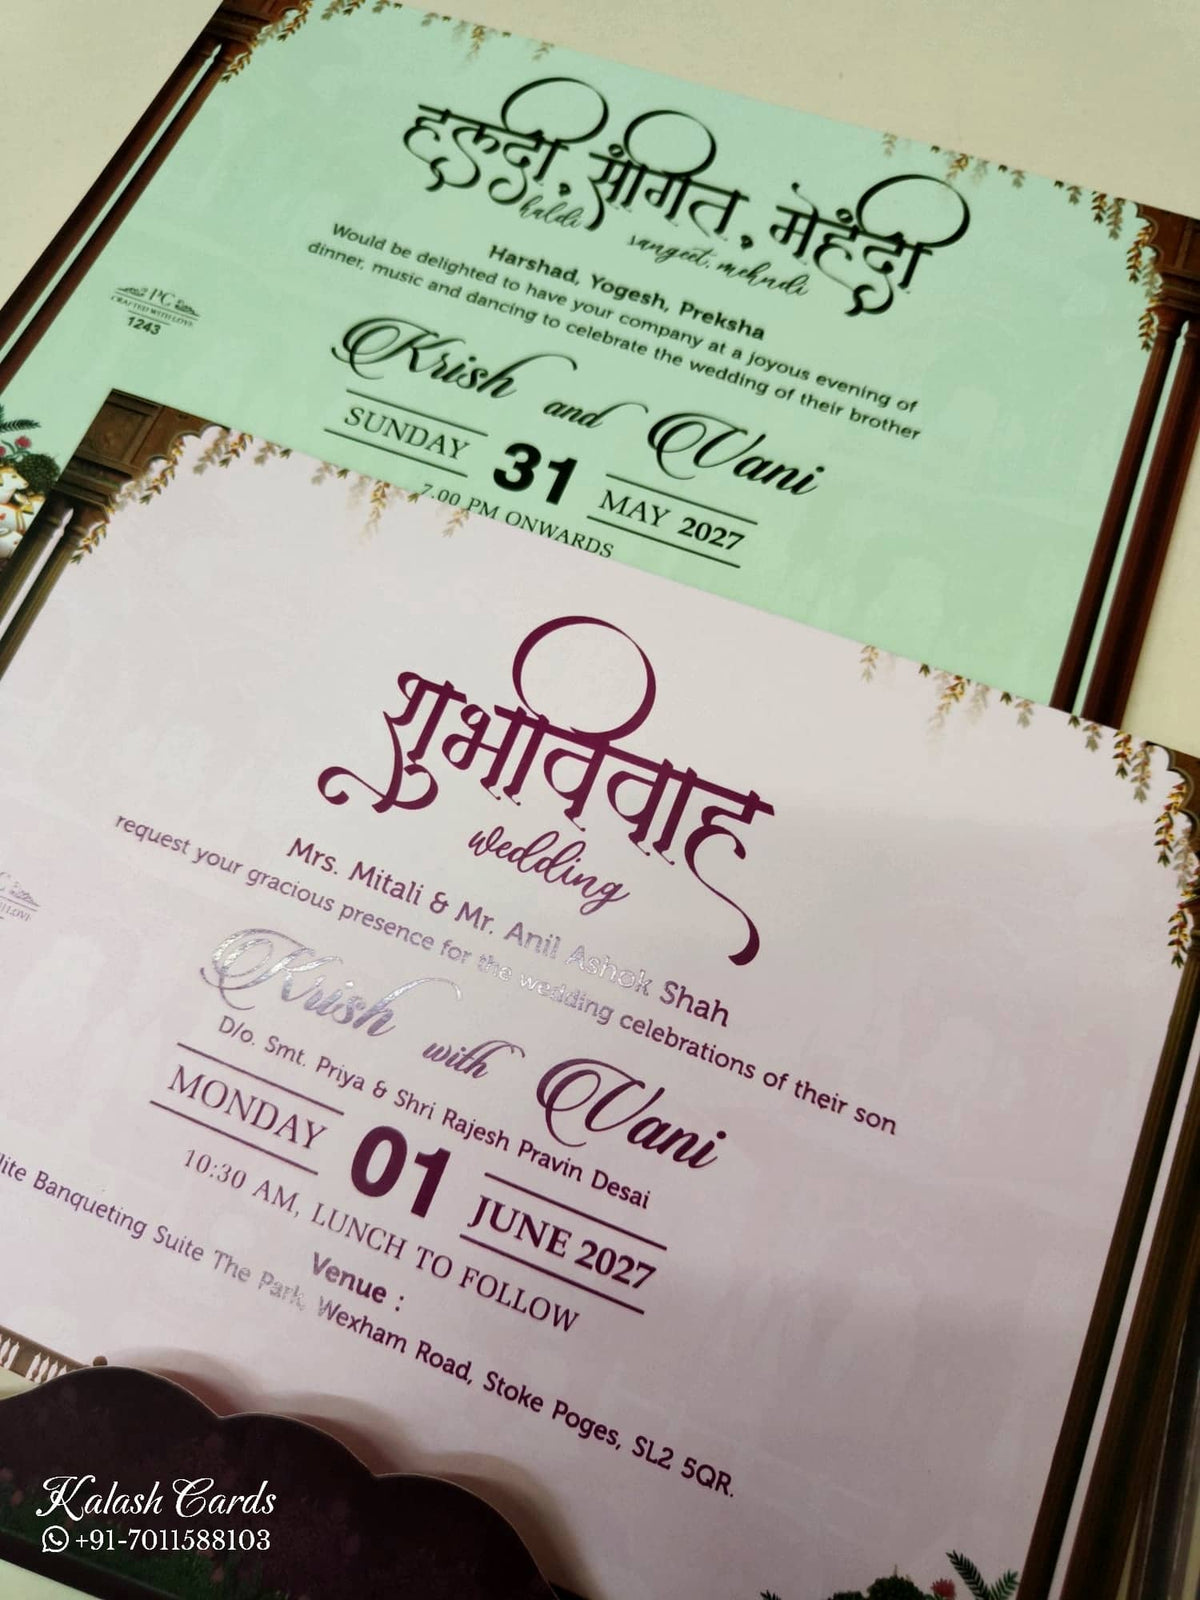 हल्दी, संगीत, मेहंदी
haldi sangeet, mehndi
Harshad, Yogesh, Preksha
Would be delighted to have your company at a joyous evening of
dinner, music and dancing to celebrate the wedding of their brother
Krish and Vani
SUNDAY 31 MAY 2027
7.00 PM ONWARDS
PC
CRAFTED WITH LOVE
1243
शुभविवाह
wedding
Mrs. Mitali & Mr. Anil Ashok Shah
request your gracious presence for the wedding celebrations of their son
Krish with Vani
D/o. Smt. Priya & Shri Rajesh Pravin Desai
MONDAY 01 JUNE 2027
10:30 AM, LUNCH TO FOLLOW
Venue :
Banqueting Suite The Park, Wexham Road, Stoke Poges, SL2 5QR.
Kalash Cards
+91-7011588103